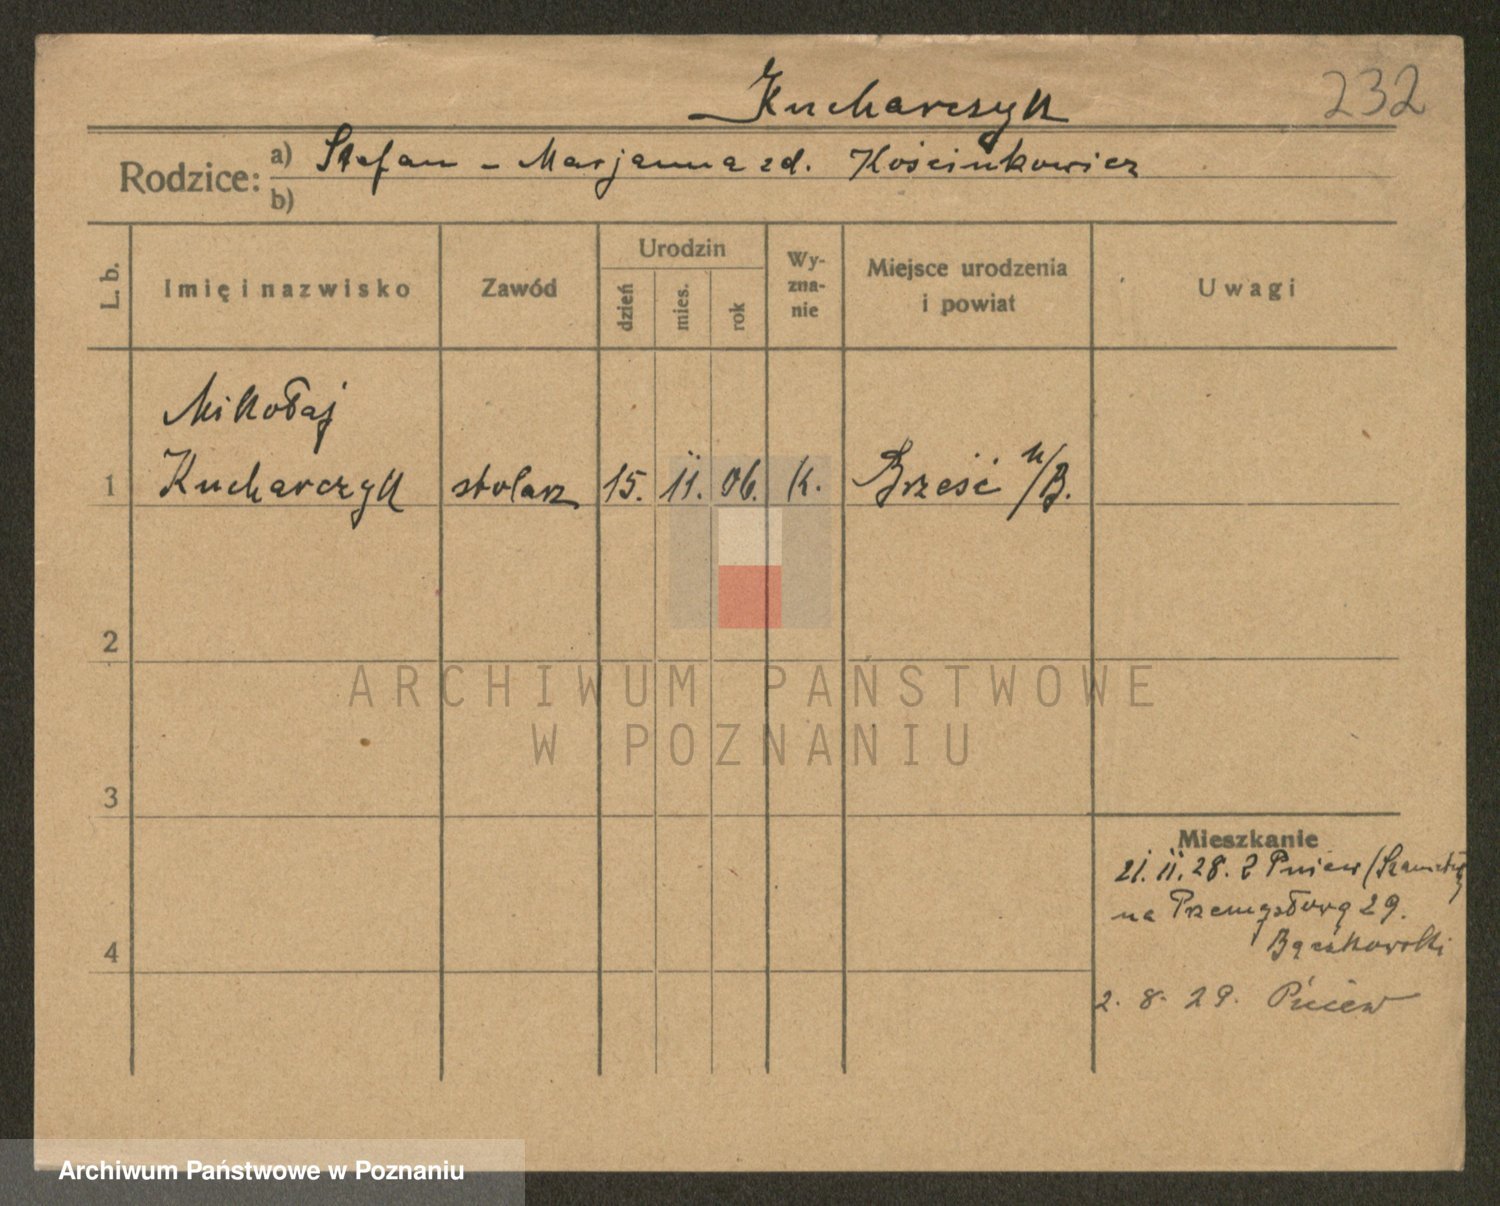 Kucharczyk
232
Rodzice: a) Stefan - Marjanna zd. Kościukowicz
b)
L. b. Imię i nazwisko Zawód Urodzin dzień mies. rok Wy-zna-nie Miejsce urodzenia i powiat Uwagi
Mikołaj
1 Kucharczyk stolarz 15. II. 06. K. Brześć n/B.
2
ARCHIWUM PAŃSTWOWE
W POZNANIU
3
Mieszkanie
21. II. 28. z Pniew
na Przemysłową 29.
4
2. 8. 29. Pniew
Archiwum Państwowe w Poznaniu